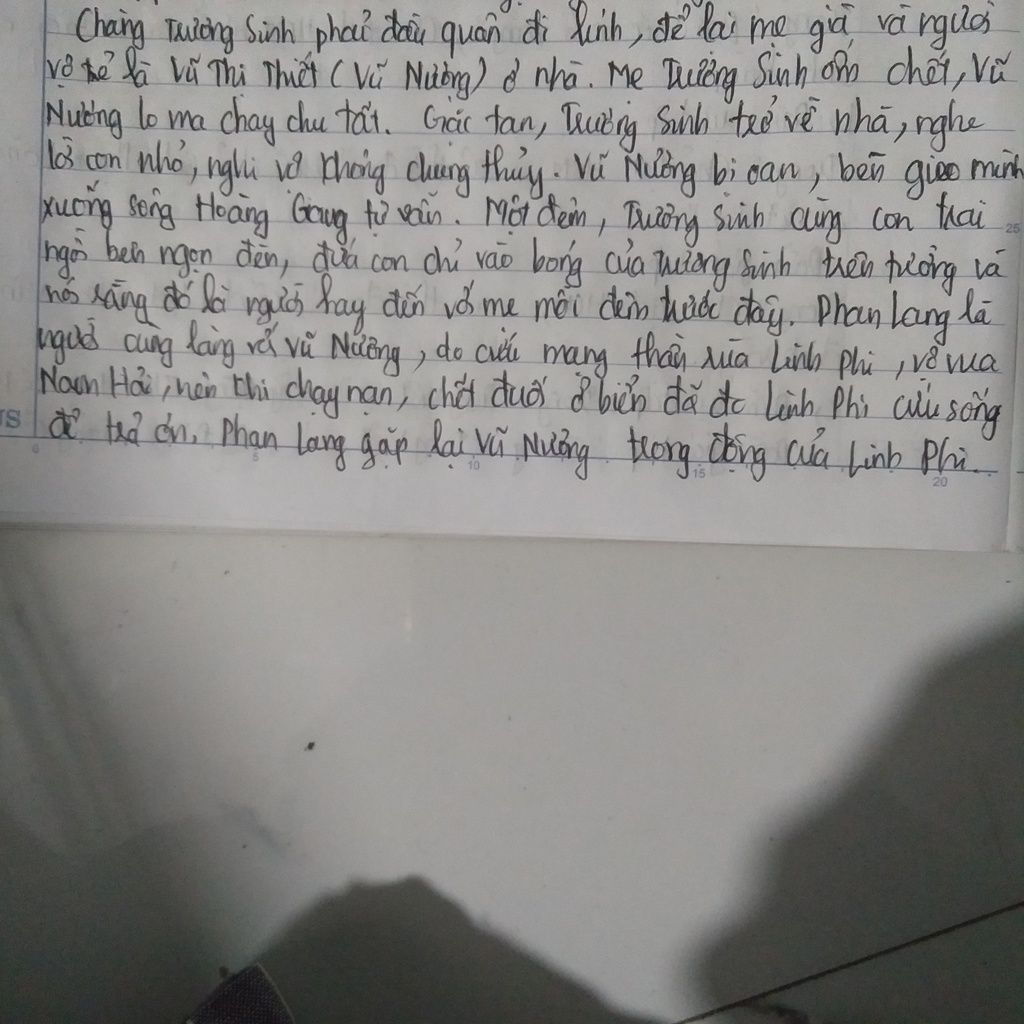 Chàng Trương Sinh phải đầu quân đi lính, để lại mẹ già và người
vợ trẻ là Vũ Thị Thiết (Vũ Nương) ở nhà. Mẹ Trương Sinh ốm chết, Vũ
Nương lo ma chay chu tất. Giặc tan, Trương Sinh trở về nhà, nghe
lời con nhỏ, nghi vợ không chung thủy. Vũ Nương bị oan, bèn gieo mình
xuống sông Hoàng Giang tự vẫn. Một đêm, Trương Sinh cùng con trai
ngồi bên ngọn đèn, đứa con chỉ vào bóng của Trương Sinh trên tường và
nói rằng đó là người hay đến với mẹ mỗi đêm trước đây. Phan Lang là
người cùng làng với Vũ Nương, do cứu mạng thần rùa Linh Phi, vợ vua
Nam Hải, nên khi chạy nạn, chết đuối ở biển đã đc Linh Phi cứu sống
để trả ơn. Phan Lang gặp lại Vũ Nương trong động của Linh Phi.
25
US
5
10
15
20